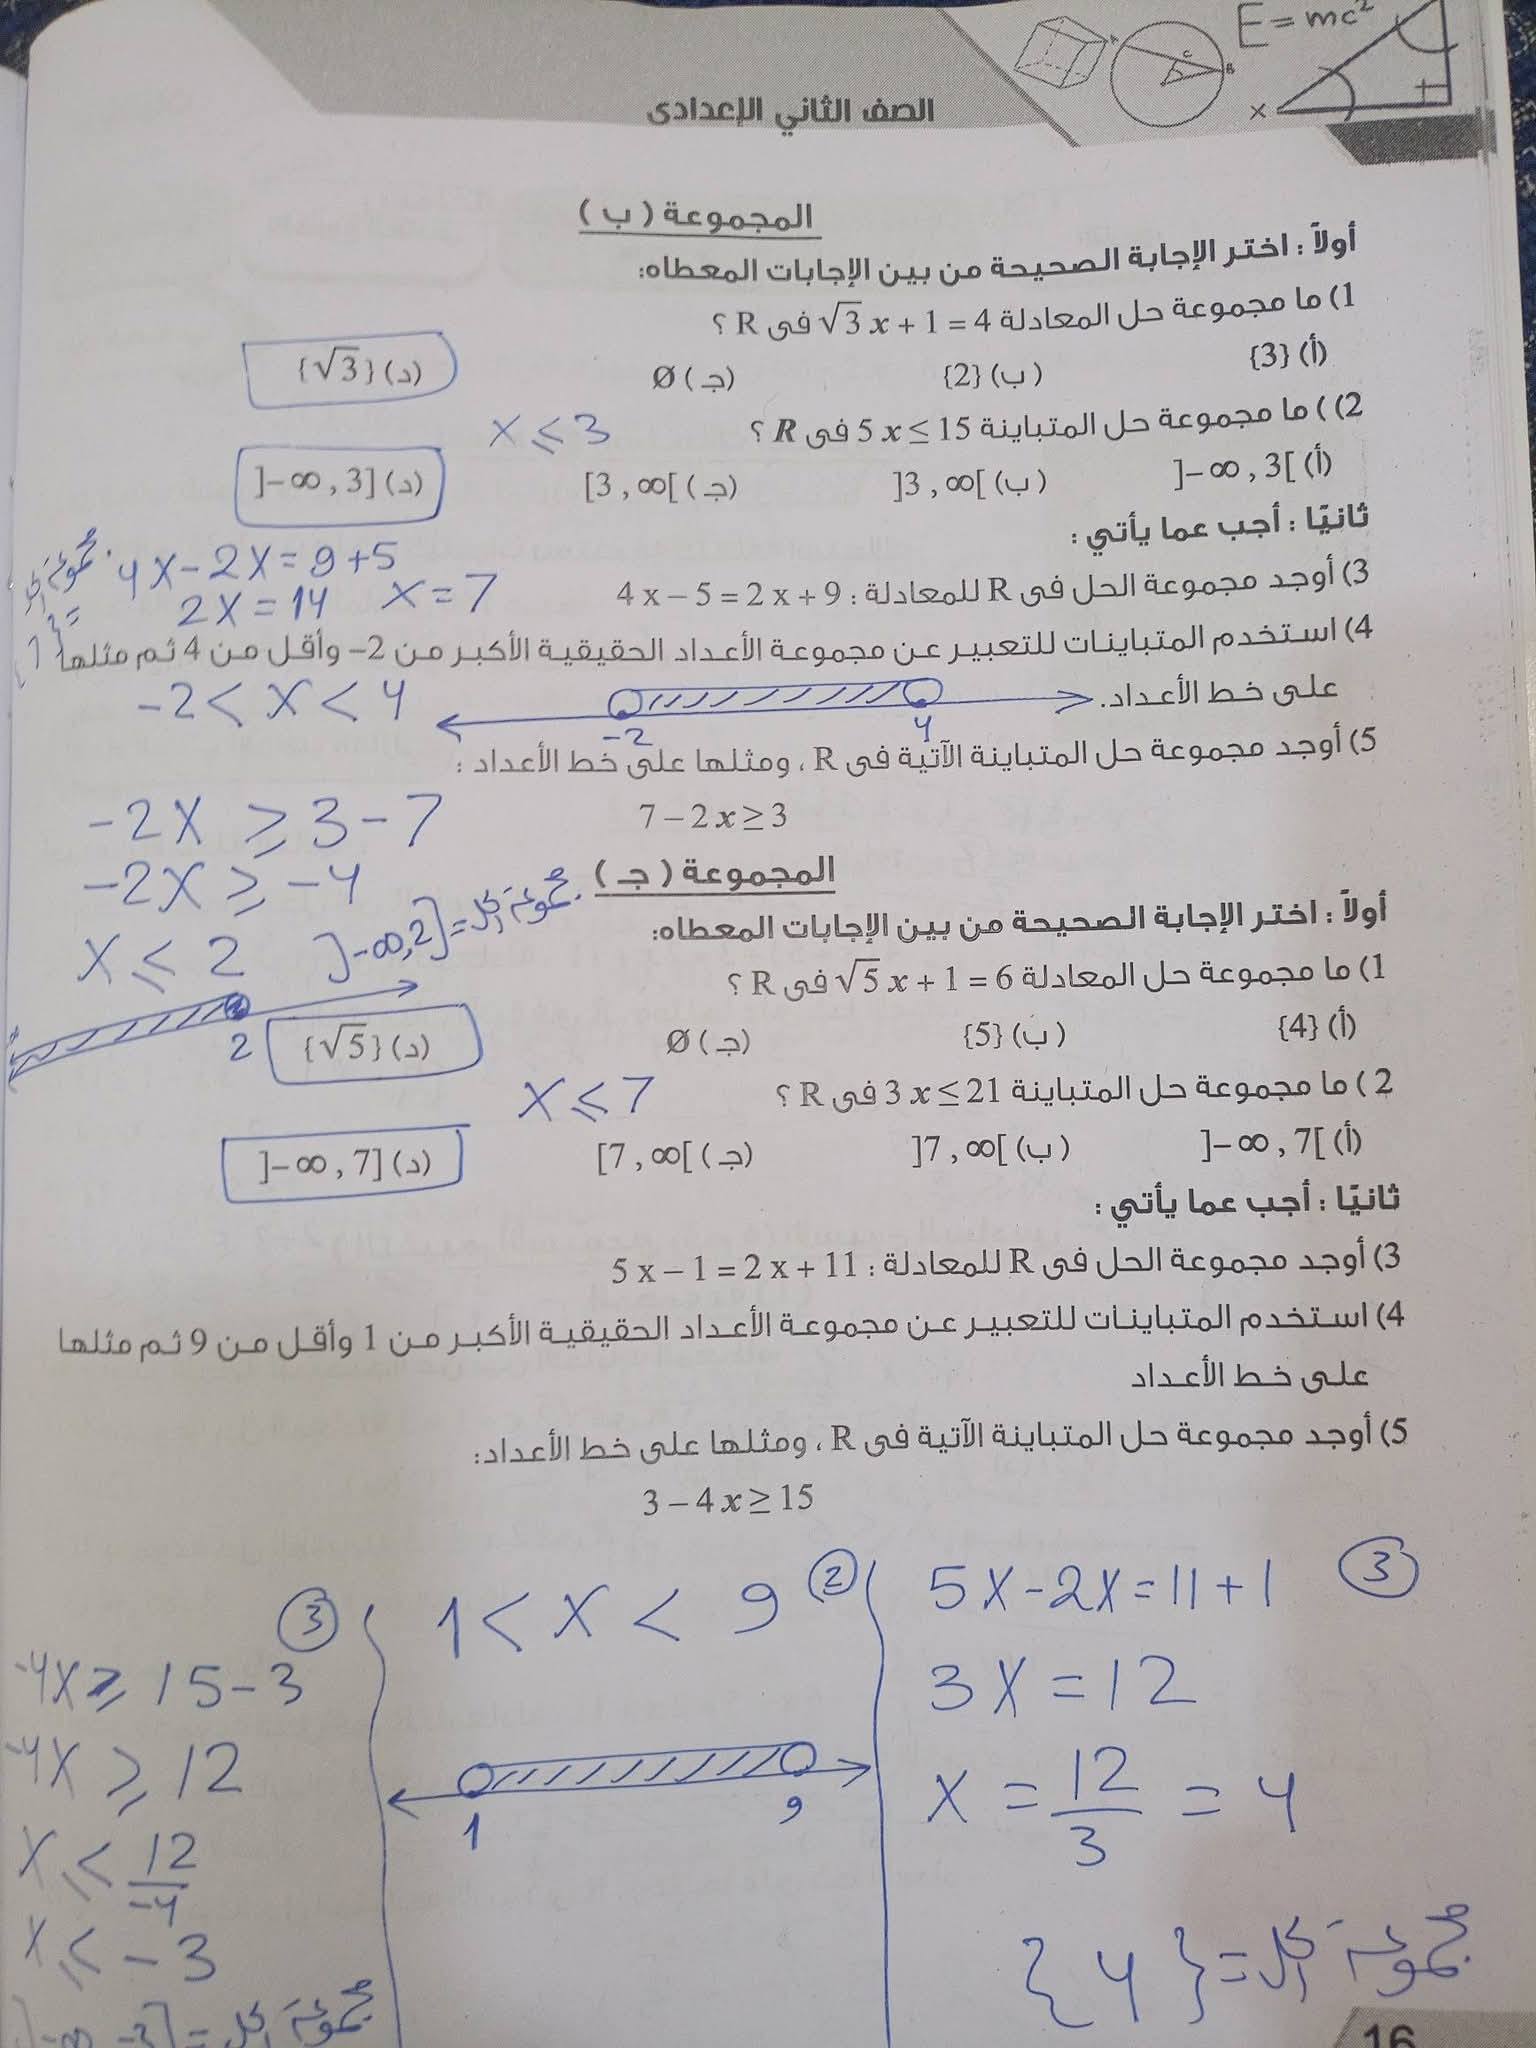 E = mc²
A
C
B
X
الصف الثاني الإعدادى
المجموعة ( ب )
أولاً : اختر الإجابة الصحيحة من بين الإجابات المعطاه:
1) ما مجموعة حل المعادلة √3 x + 1 = 4 فى R ؟
(أ) {3} (ب) {2} (جـ) Ø (د) {√3}
2) ) ما مجموعة حل المتباينة 5 x ≤ 15 فى R ؟ x ≤ 3
(أ) ]–∞ , 3[ (ب) ]3 , ∞[ (جـ) [3 , ∞[ (د) ]–∞ , 3]
ثانيًا : أجب عما يأتي :
3) أوجد مجموعة الحل فى R للمعادلة : 4 x – 5 = 2 x + 9
4x - 2x = 9+5
2x = 14 x = 7
مجموعة الحل = {7}
4) استخدم المتباينات للتعبير عن مجموعة الأعداد الحقيقية الأكبر من 2– وأقل من 4 ثم مثلها
على خط الأعداد.
-2 < x < 4
-2 4
5) أوجد مجموعة حل المتباينة الآتية فى R ، ومثلها على خط الأعداد :
7 – 2 x ≥ 3
-2x ≥ 3-7
-2x ≥ -4
x ≤ 2
مجموعة الحل = ]-∞,2]
2
المجموعة ( جـ )
أولاً : اختر الإجابة الصحيحة من بين الإجابات المعطاه:
1) ما مجموعة حل المعادلة √5 x + 1 = 6 فى R ؟
(أ) {4} (ب) {5} (جـ) Ø (د) {√5}
2 ) ما مجموعة حل المتباينة 3 x ≤ 21 فى R ؟ x ≤ 7
(أ) ]–∞ , 7[ (ب) ]7 , ∞[ (جـ) [7 , ∞[ (د) ]–∞ , 7]
ثانيًا : أجب عما يأتي :
3) أوجد مجموعة الحل فى R للمعادلة : 5 x – 1 = 2 x + 11
4) استخدم المتباينات للتعبير عن مجموعة الأعداد الحقيقية الأكبر من 1 وأقل من 9 ثم مثلها
على خط الأعداد
5) أوجد مجموعة حل المتباينة الآتية فى R ، ومثلها على خط الأعداد:
3 – 4 x ≥ 15
3
5x-2x=11+1
3x = 12
x = 12/3 = 4
مجموعة الحل = {4}
2
1 < x < 9
1 9
3
-4x ≥ 15-3
-4x ≥ 12
x ≤ 12/-4
x ≤ -3
مجموعة الحل = ]-∞ -3]
16